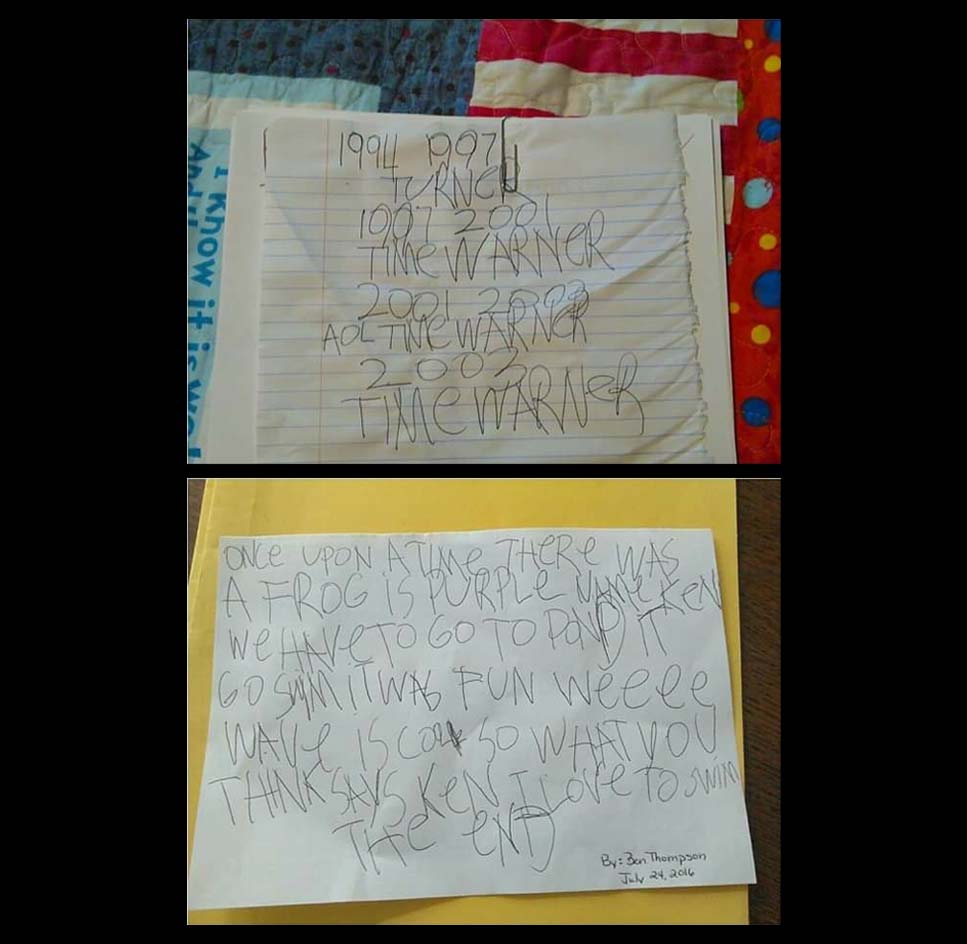 1994 1997
TURNER
1997 2001
TIMe WARNeR
2001 2003
AOL TIMe WARNeR
2003
TIMe WARNeR
I know it is we!
Andy!
ONCe UPON A TIMe THeRe WAS
A FROG iS PURPLe NAMe KeN
We HAVe TO GO TO POND iT
GO SWiM iT WAS FUN Weeee
WAVe IS COOL SO WHAT YOU
THINK SAYS KeN I LOVe TO SWIM
THe eND
By: Ben Thompson
July 24, 2016